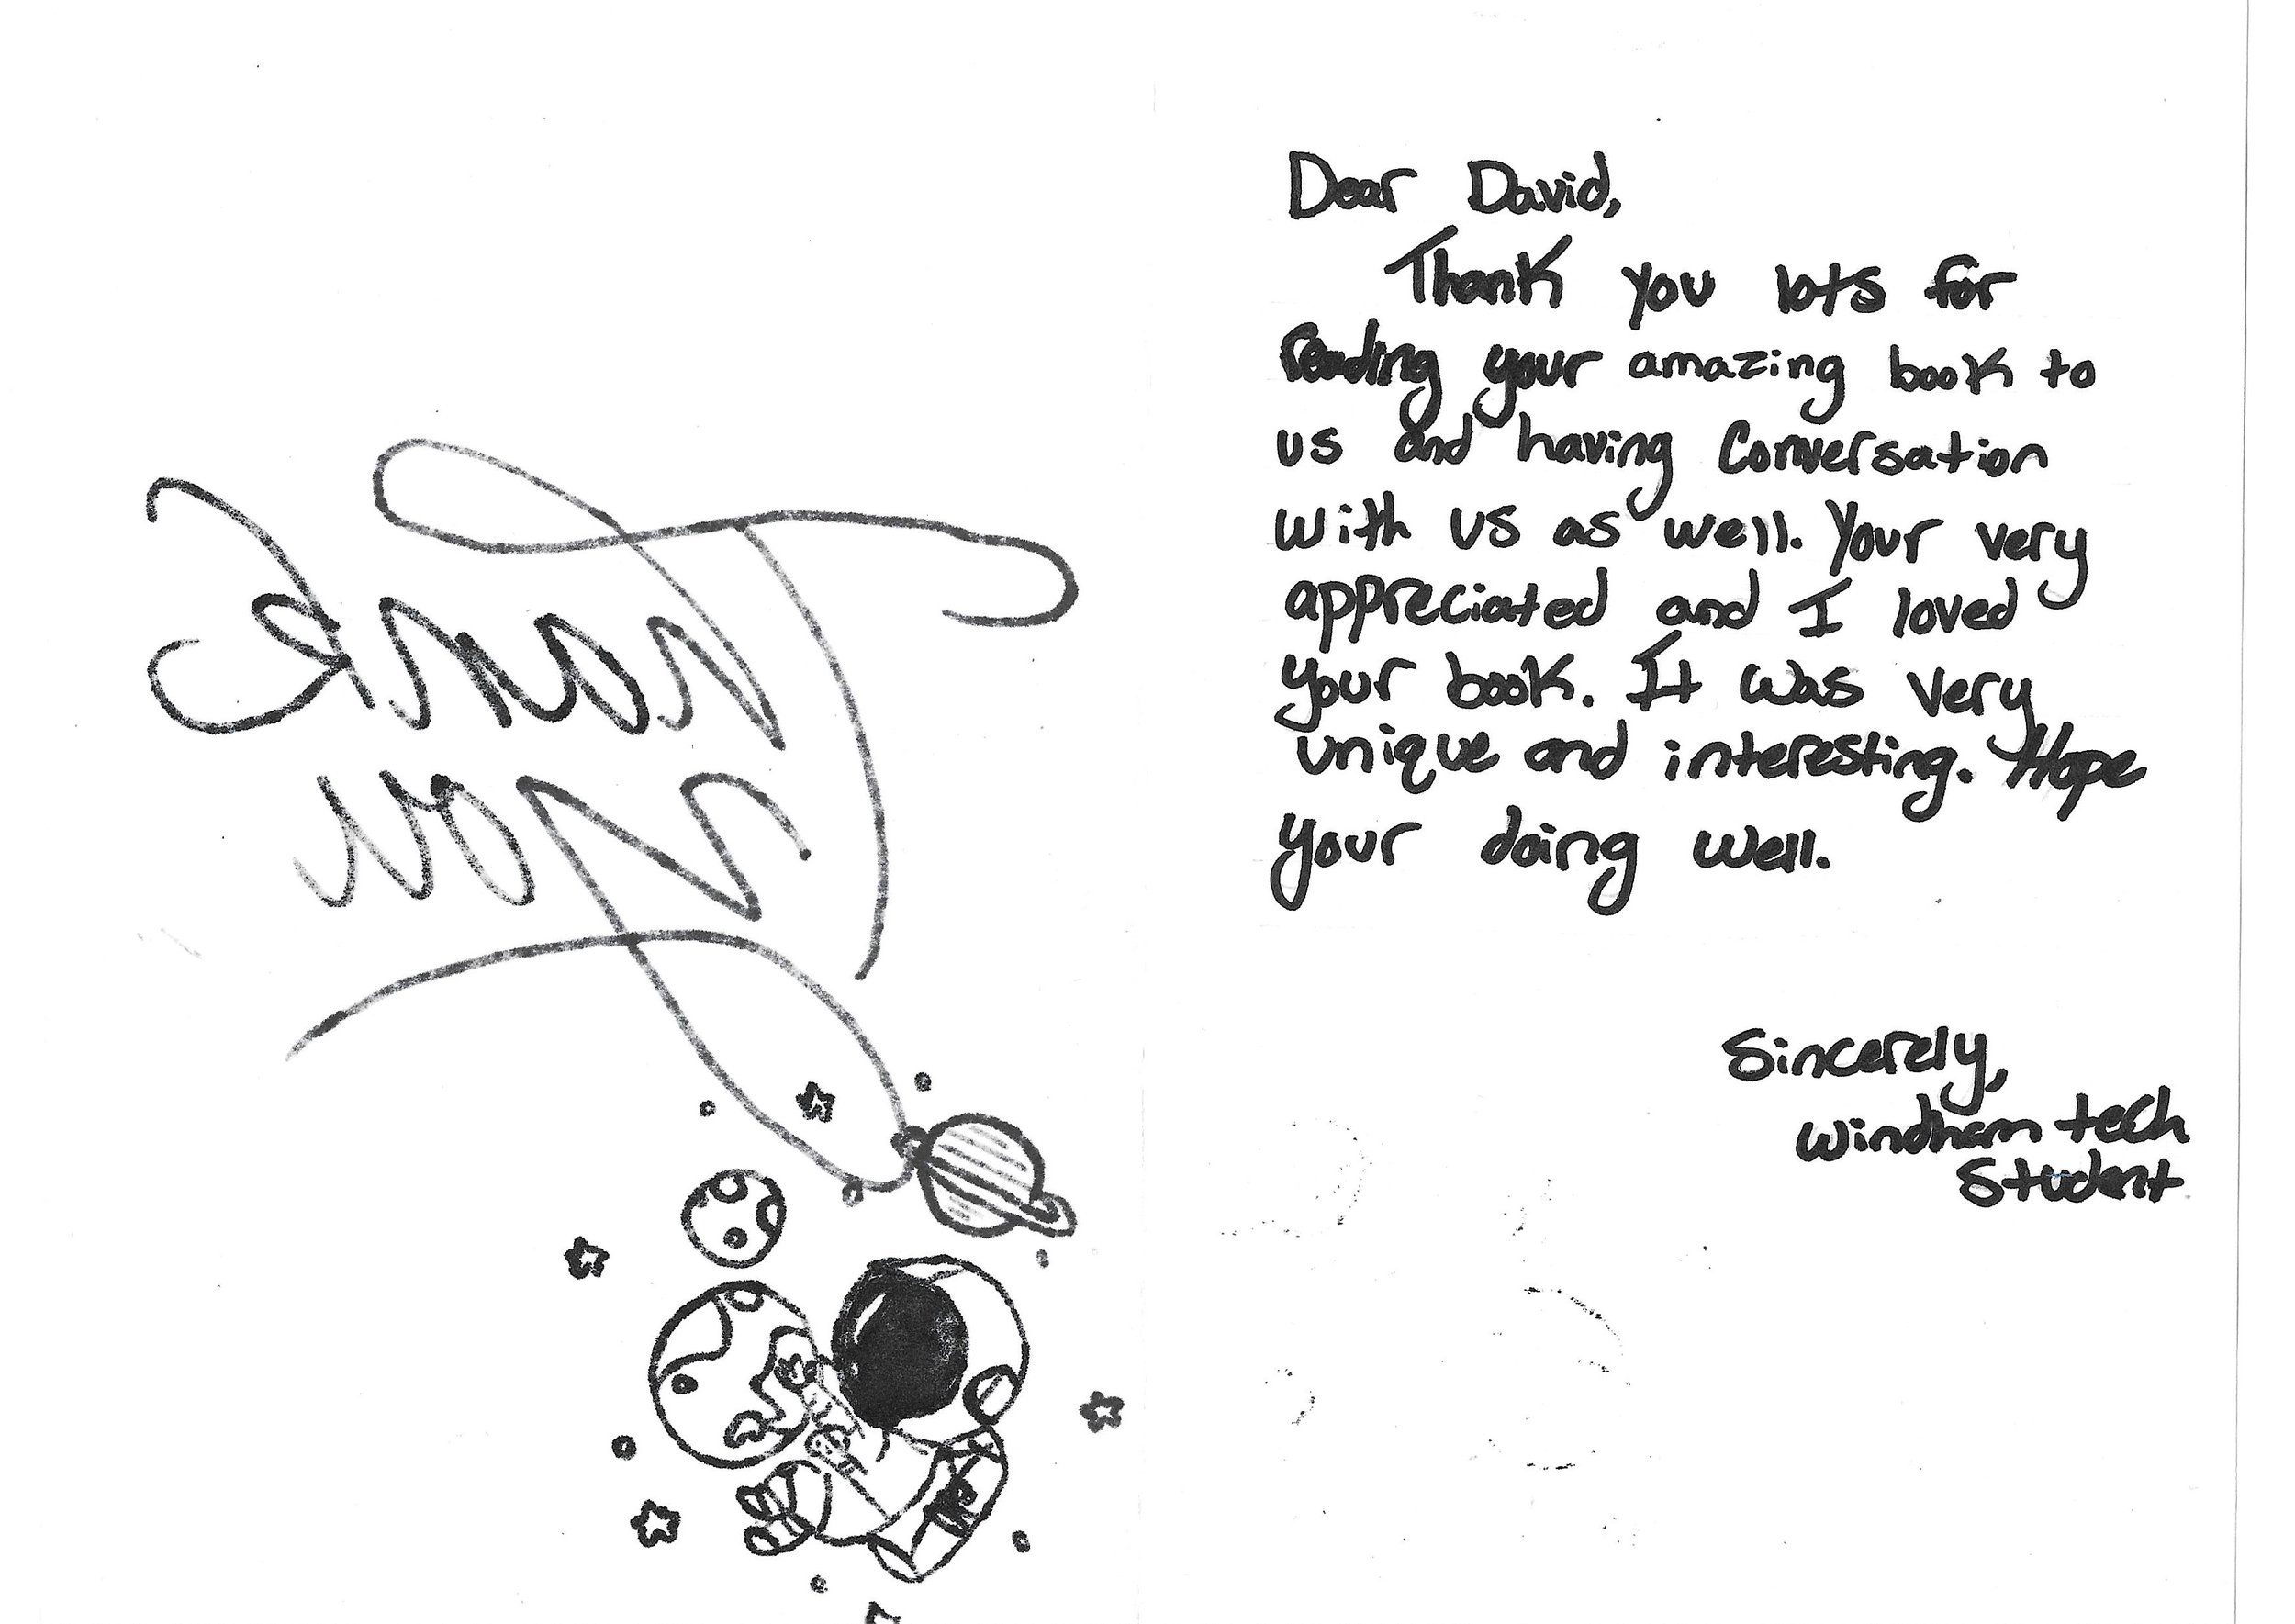 Thank
you
Dear David,
Thank you lots for
reading your amazing book to
us and having Conversation
with us as well. Your very
appreciated and I loved
your book. It was very
unique and interesting. Hope
your doing well.
Sincerely,
Windham tech
Student